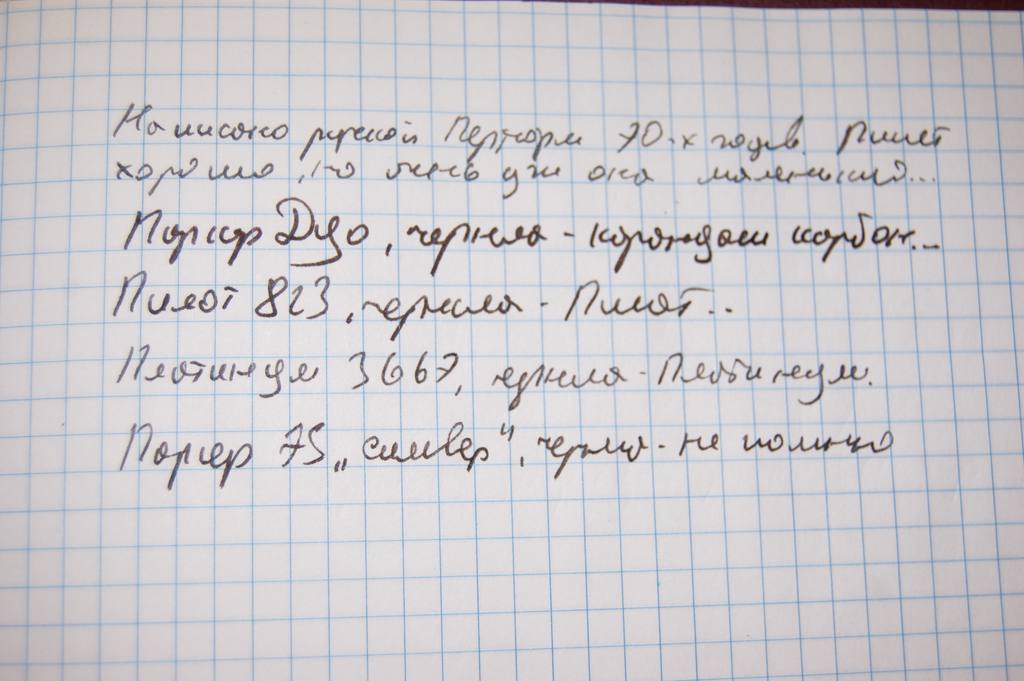 Написано ручкой 70-х годов. Пишет
хорошо, но очень уж она маленькая...
Паркер Дуо, чернила - карандаш карбон...
Пилот 823, чернила - Пилот..
Платинум 3667, чернила - Платинум.
Паркер 75 „сильвер", чернила - не помню